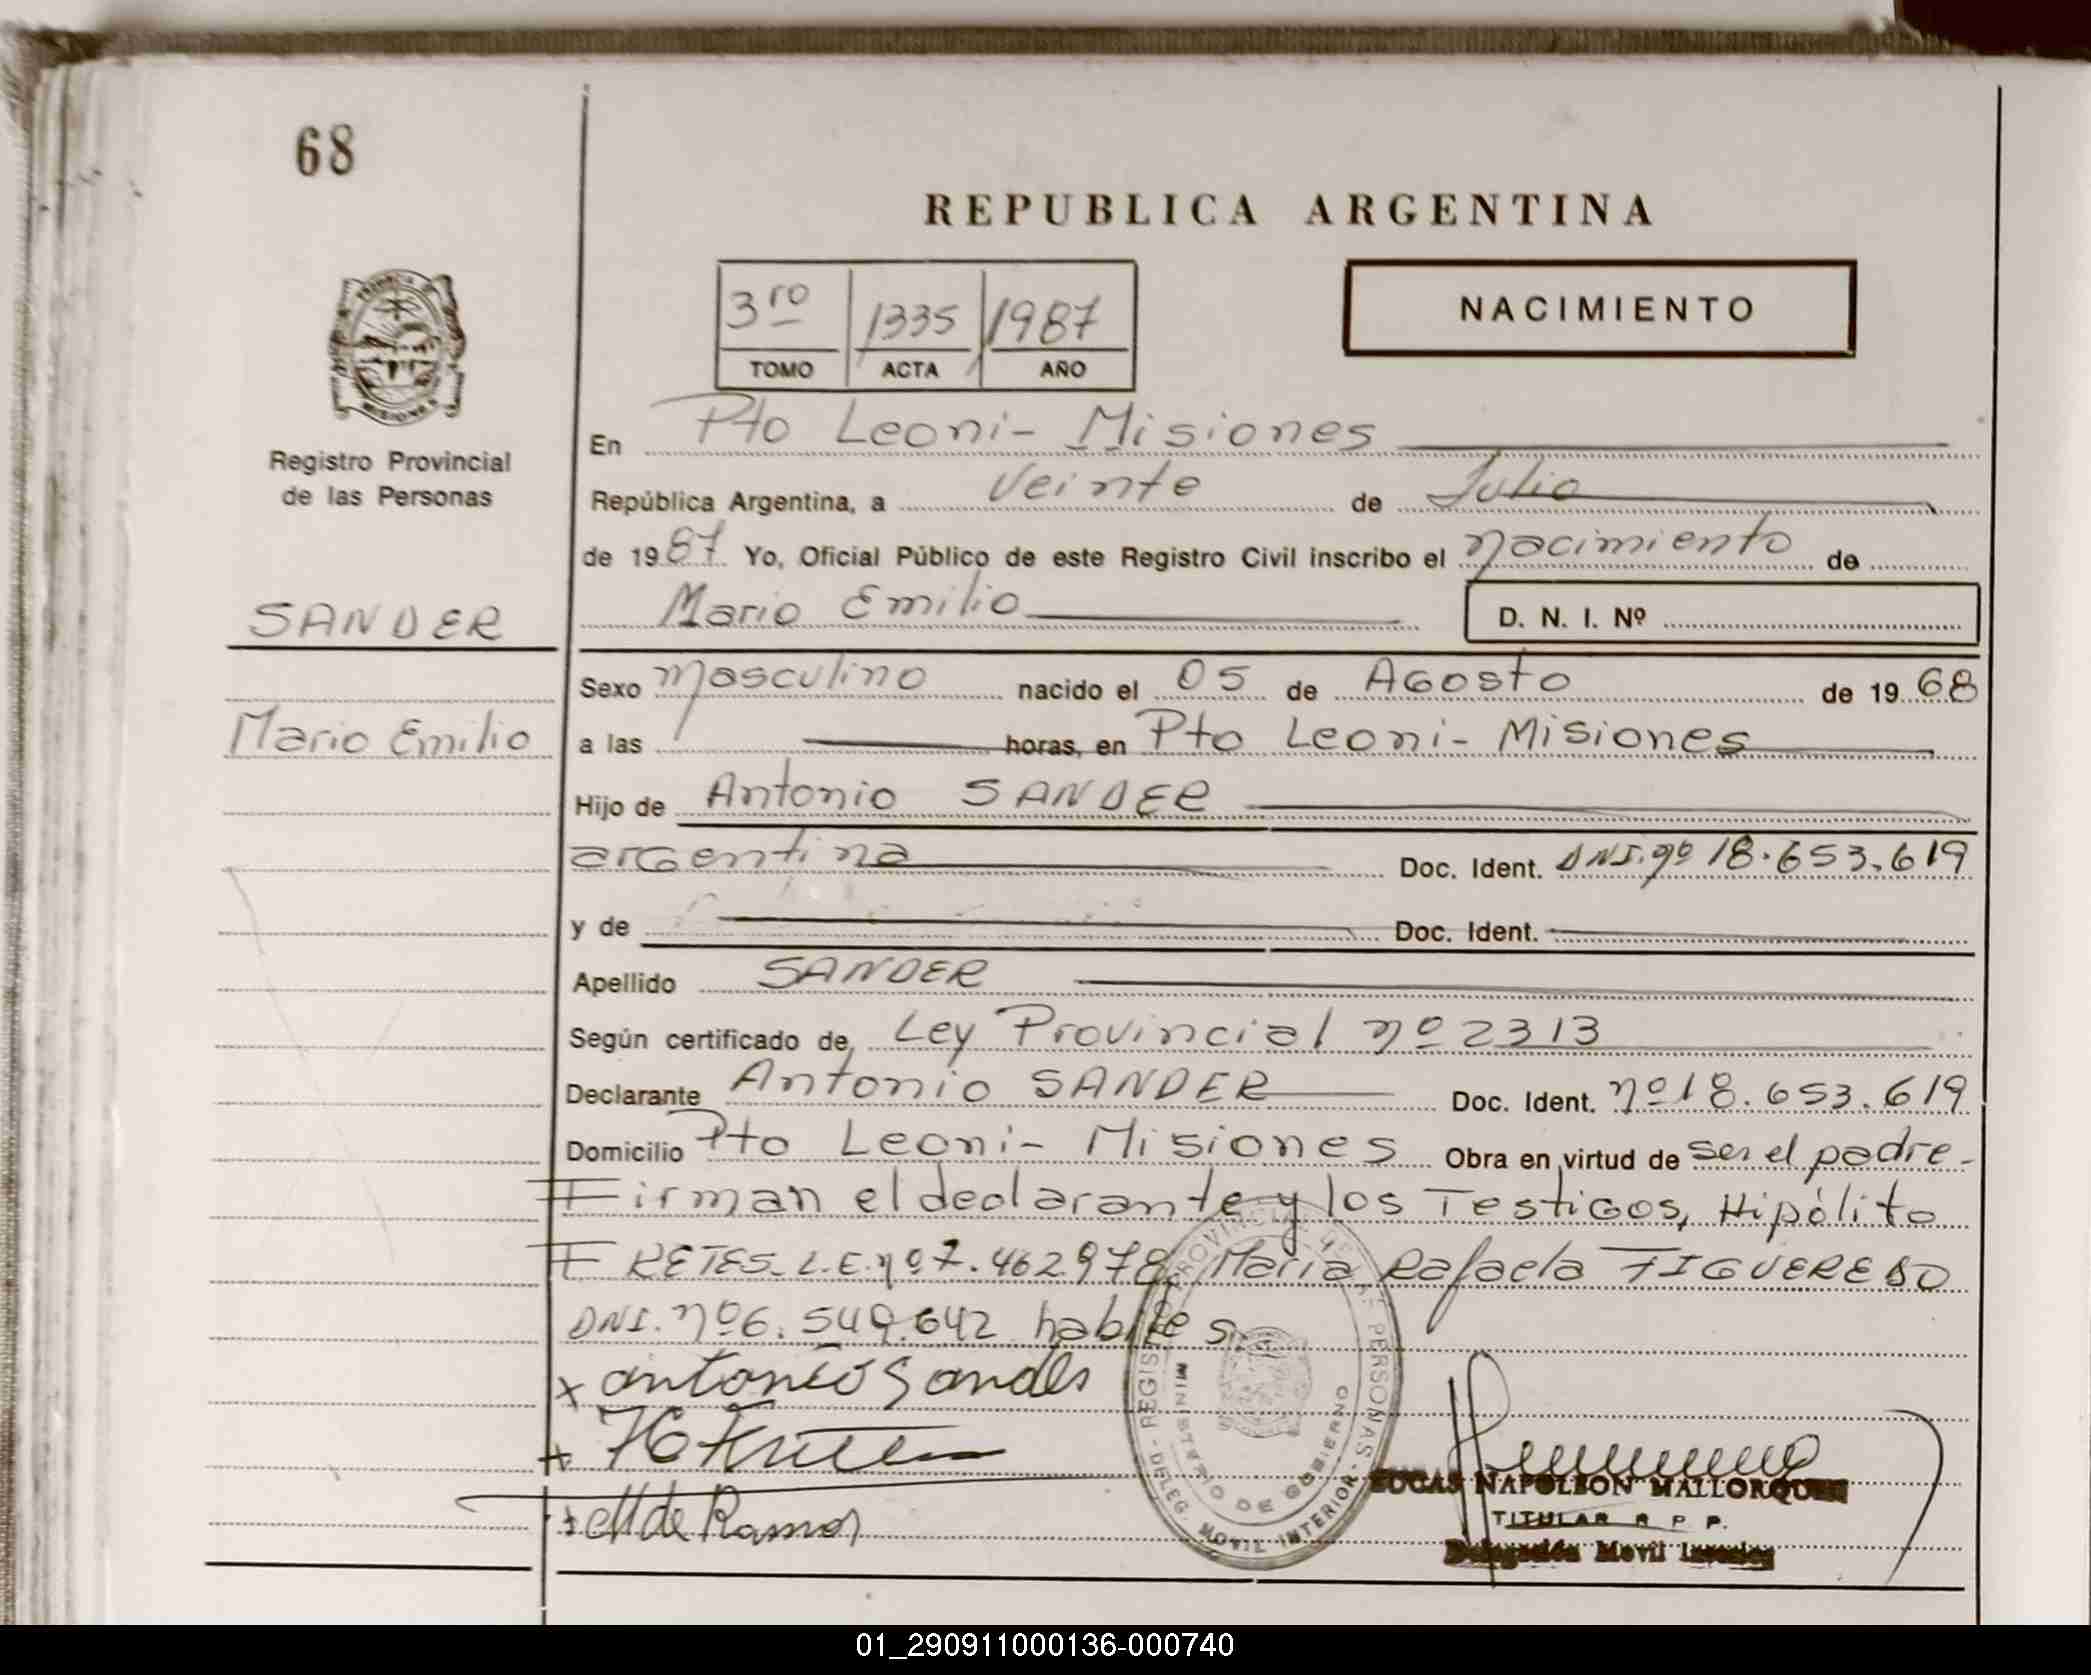 68
REPUBLICA ARGENTINA
3ro 1335 1987
TOMO ACTA AÑO
NACIMIENTO
MISIONES
Registro Provincial
de las Personas
SANDER
Mario Emilio
En Pto Leoni - Misiones
República Argentina, a veinte de Julio
de 1987 Yo, Oficial Público de este Registro Civil inscribo el nacimiento de
Mario Emilio D. N. I. Nº
Sexo masculino nacido el 05 de Agosto de 1968
a las horas, en Pto Leoni - Misiones
Hijo de Antonio SANDER
argentina Doc. Ident. DNI. nº 18.653.619
y de Doc. Ident.
Apellido SANDER
Según certificado de Ley Provincial nº 2313
Declarante Antonio SANDER Doc. Ident. nº 18.653.619
Domicilio Pto Leoni - Misiones Obra en virtud de ser el padre -
Firman el declarante y los Testigos, Hipólito
FRETES. L.E. nº 7.462978, Maria Rafaela FIGUEREDO
DNI. nº 6.549.642 habiles.
x antonio Sander
+
+ de Ramos
REGISTRO PROVINCIAL DE LAS PERSONAS - DELEG. MOVIL INTERIOR -
MINISTERIO DE GOBIERNO
LUCAS NAPOLEON MALLORQUIN
TITULAR R P P.
Delegación Movil Interior
01_290911000136-000740